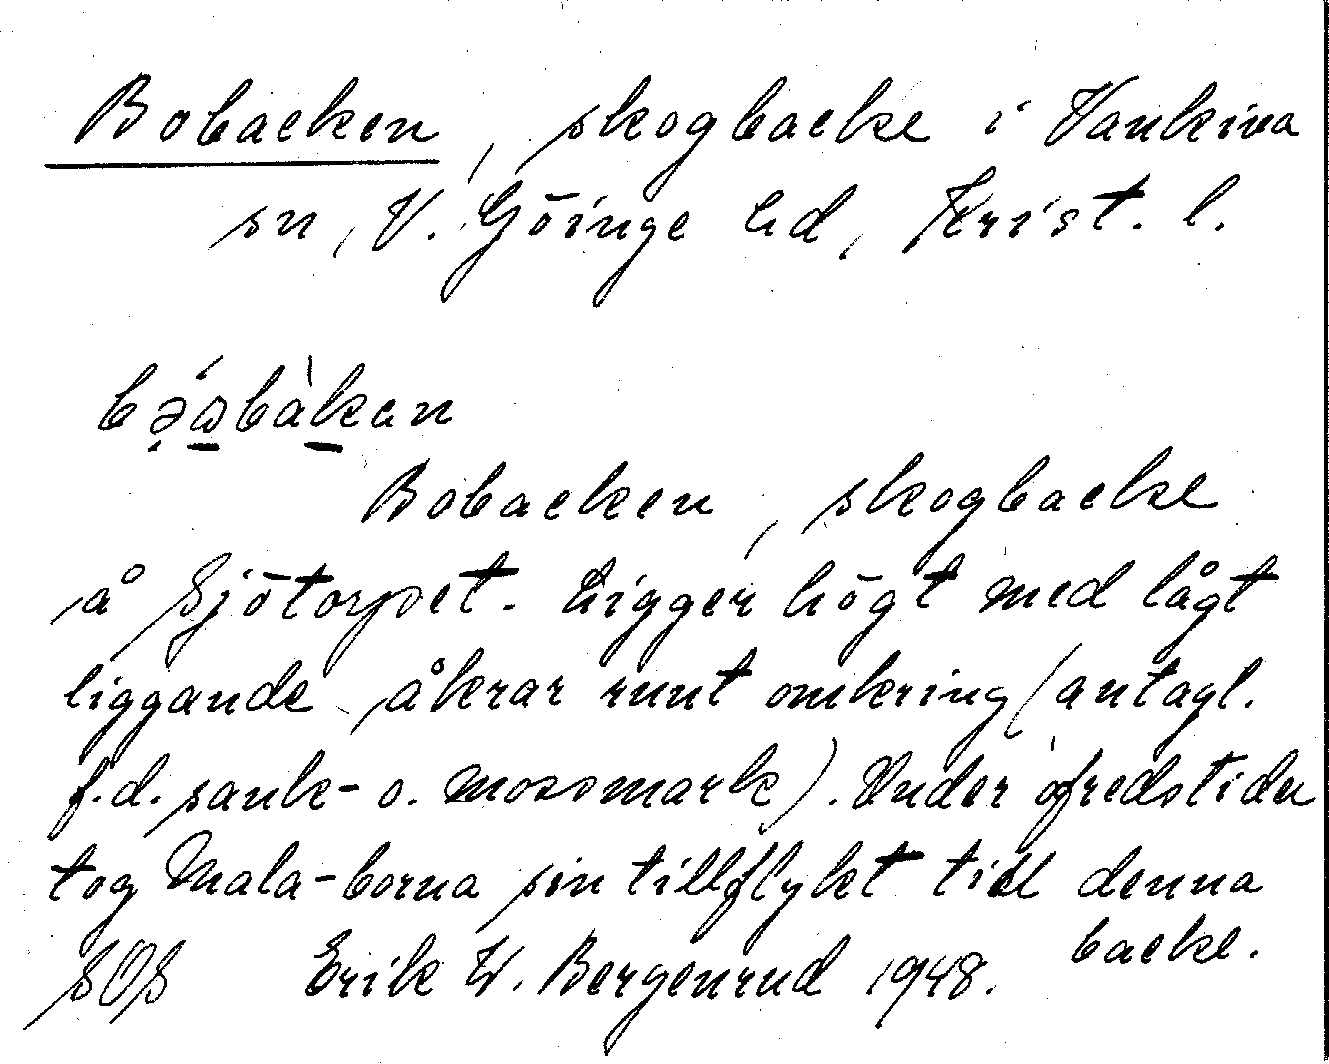 Bobacken, skogbacke i Vankiva
sn, V. Göinge hd, Krist. l.
Bobacken, skogbacke
å Sjötorpet. Ligger högt med lågt
liggande åkrar runt omkring (antagl.
f.d. sank- o. mossmark). Under ofredstider
tog Mala-borna sin tillflykt till denna
backe.
SOS Erik W. Bergenrud 1948.